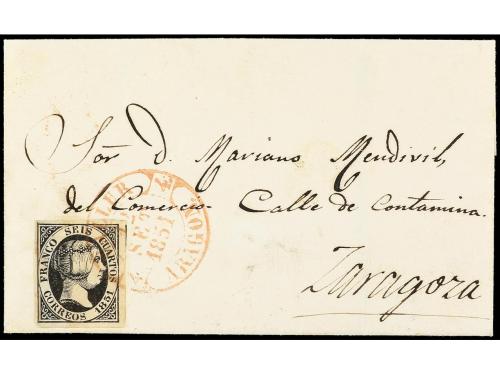 Sor. D. Mariano Mendivil,
del Comercio Calle de Contamina.
Zaragoza
SET
1851
ARAGON
FRANCO SEIS CUARTOS
CORREOS 1851